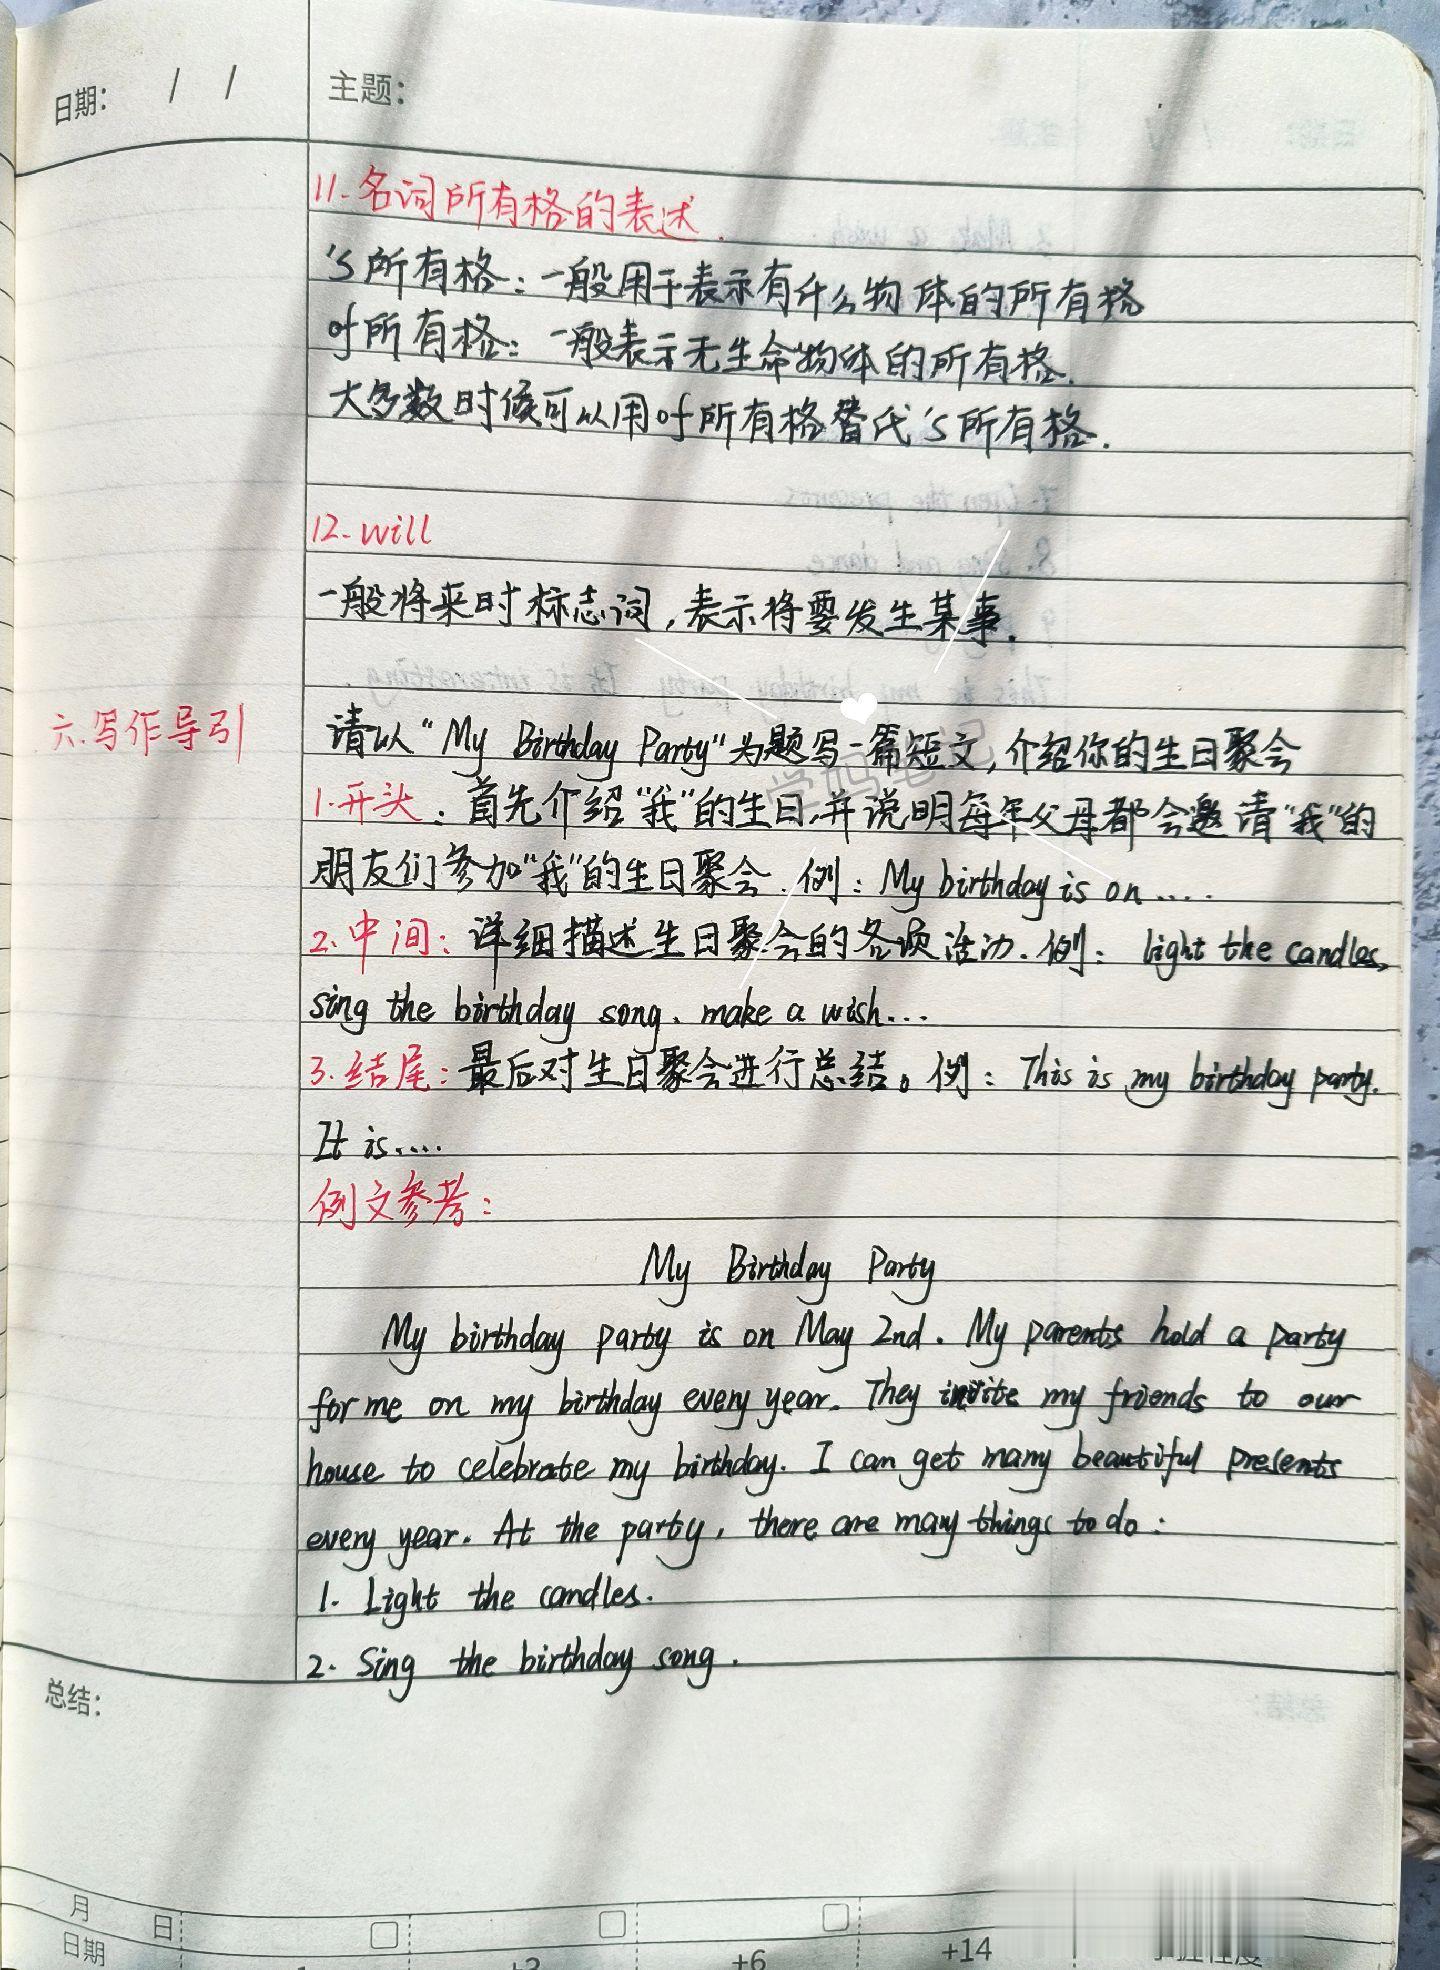 日期: / / 主题:
11.名词所有格的表述.
's所有格：一般用于表示有什么物体的所有格
of所有格：一般表示无生命物体的所有格.
大多数时候可以用of所有格替代's所有格.
12.will
一般将来时标志词，表示将要发生某事.
六.写作导引
请以"My Birthday Party"为题写一篇短文,介绍你的生日聚会
1.开头：首先介绍"我"的生日,并说明每年父母都会邀请"我"的
朋友们参加"我"的生日聚会.例：My birthday is on.....
2.中间：详细描述生日聚会的各项活动.例： light the candles,
sing the birthday song. make a wish...
3.结尾：最后对生日聚会进行总结。例：This is my birthday party.
It is.....
例文参考：
My Birthday Party
My birthday party is on May 2nd. My parents hold a party
for me on my birthday every year. They invite my friends to our
house to celebrate my birthday. I can get many beautiful presents
every year. At the party, there are many things to do:
1. Light the candles.
2. Sing the birthday song.
总结:
学妈笔记
月 日
日期 +6 +14